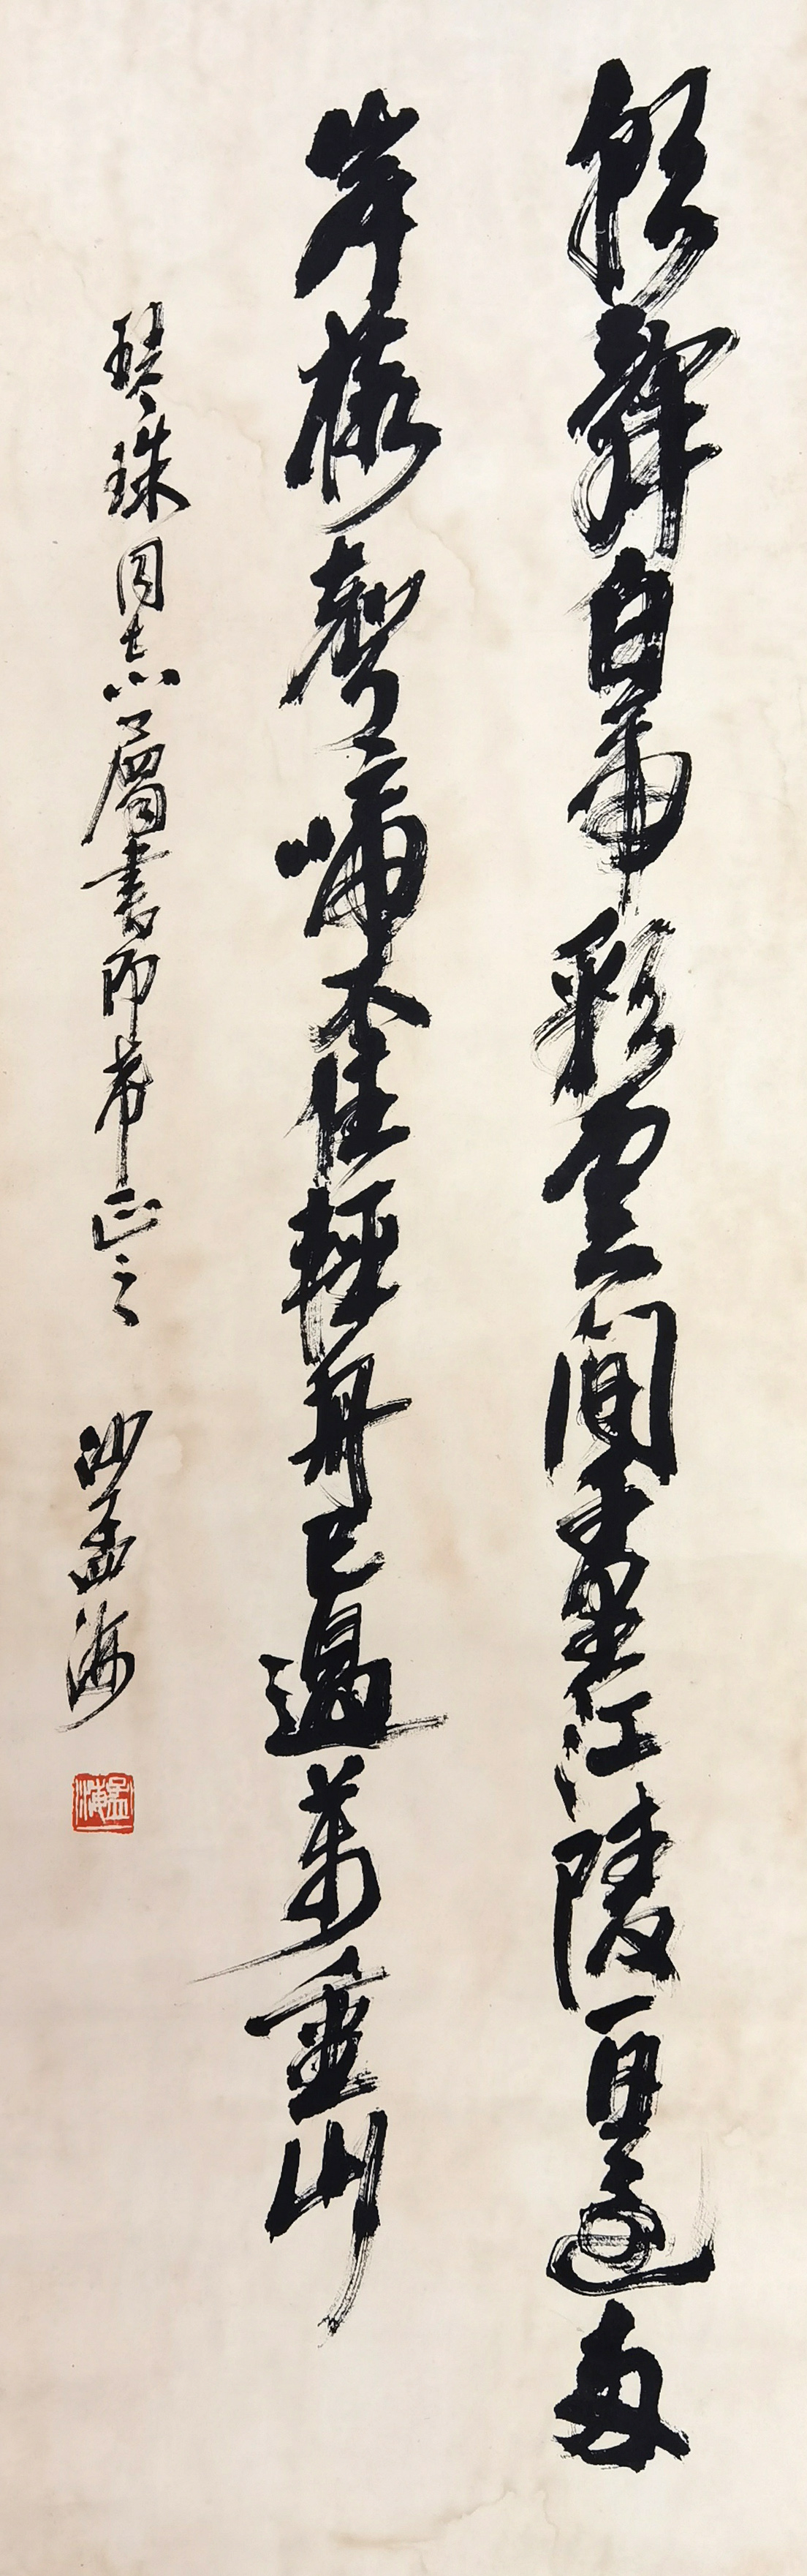 朝辭白帝彩雲間千里江陵一日還兩
岸猿聲啼不住輕舟已過萬重山
琴珠同志屬書即希正之
沙孟海
孟海